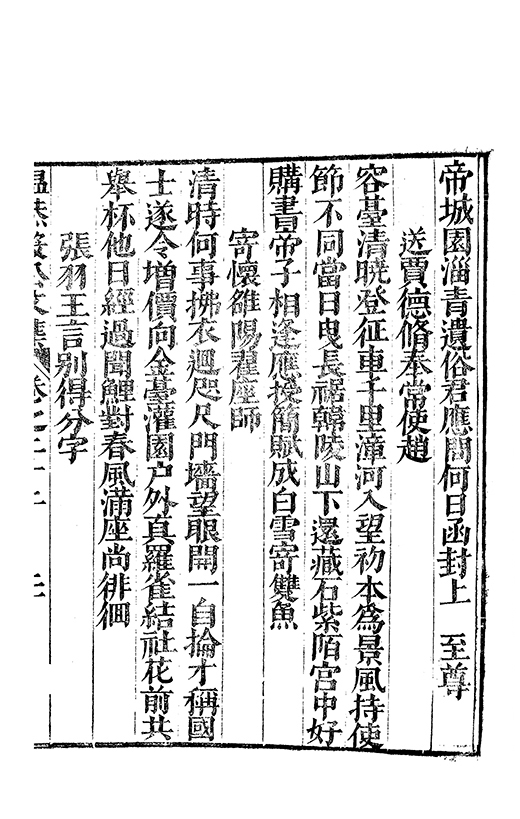 帝城園淄青遺俗君應問何日函封上　至尊
送賈德脩奉常使趙
容臺清曉登征車千里漳河入望初本為景風持使
節不同當日曳長裾韓陵山下還藏石紫陌宮中好
購書帝子相逢應授簡賦成白雪寄雙魚
寄懷雒陽翟座師
清時何事拂衣廻咫尺門墻望眼開一自掄才稱國
士遂令增價向金臺灌園户外真羅雀結社花前共
舉杯他日經過聞鯉對春風滿座尚徘徊
張羽王言别得分字